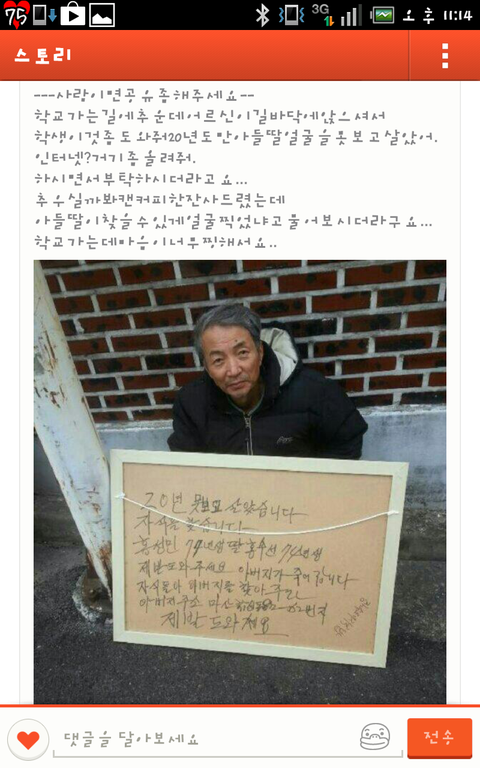 75
3G
오후 11:14
스토리
---사람이면공유좀해주세요--
학교가는길에추운데어르신이길바닥에앉으셔서
학생이것좀도와줘20년도만아들딸얼굴을못보고살았어.
인터넷?거기좀올려줘.
하시면서부탁하시더라고요...
추우실까봐캔커피한잔사드렸는데
아들딸이찾을수있게얼굴찍었냐고물어보시더라구요...
학교가는데마음이너무찡해서요..
20년 못보고 살았습니다
자식을 찾습니다
74년생 딸 74년생
제발 도와주세요 아버지가 죽어갑니다
아버지 주소 마산
제발 도와주세요
댓글을 달아보세요
전송